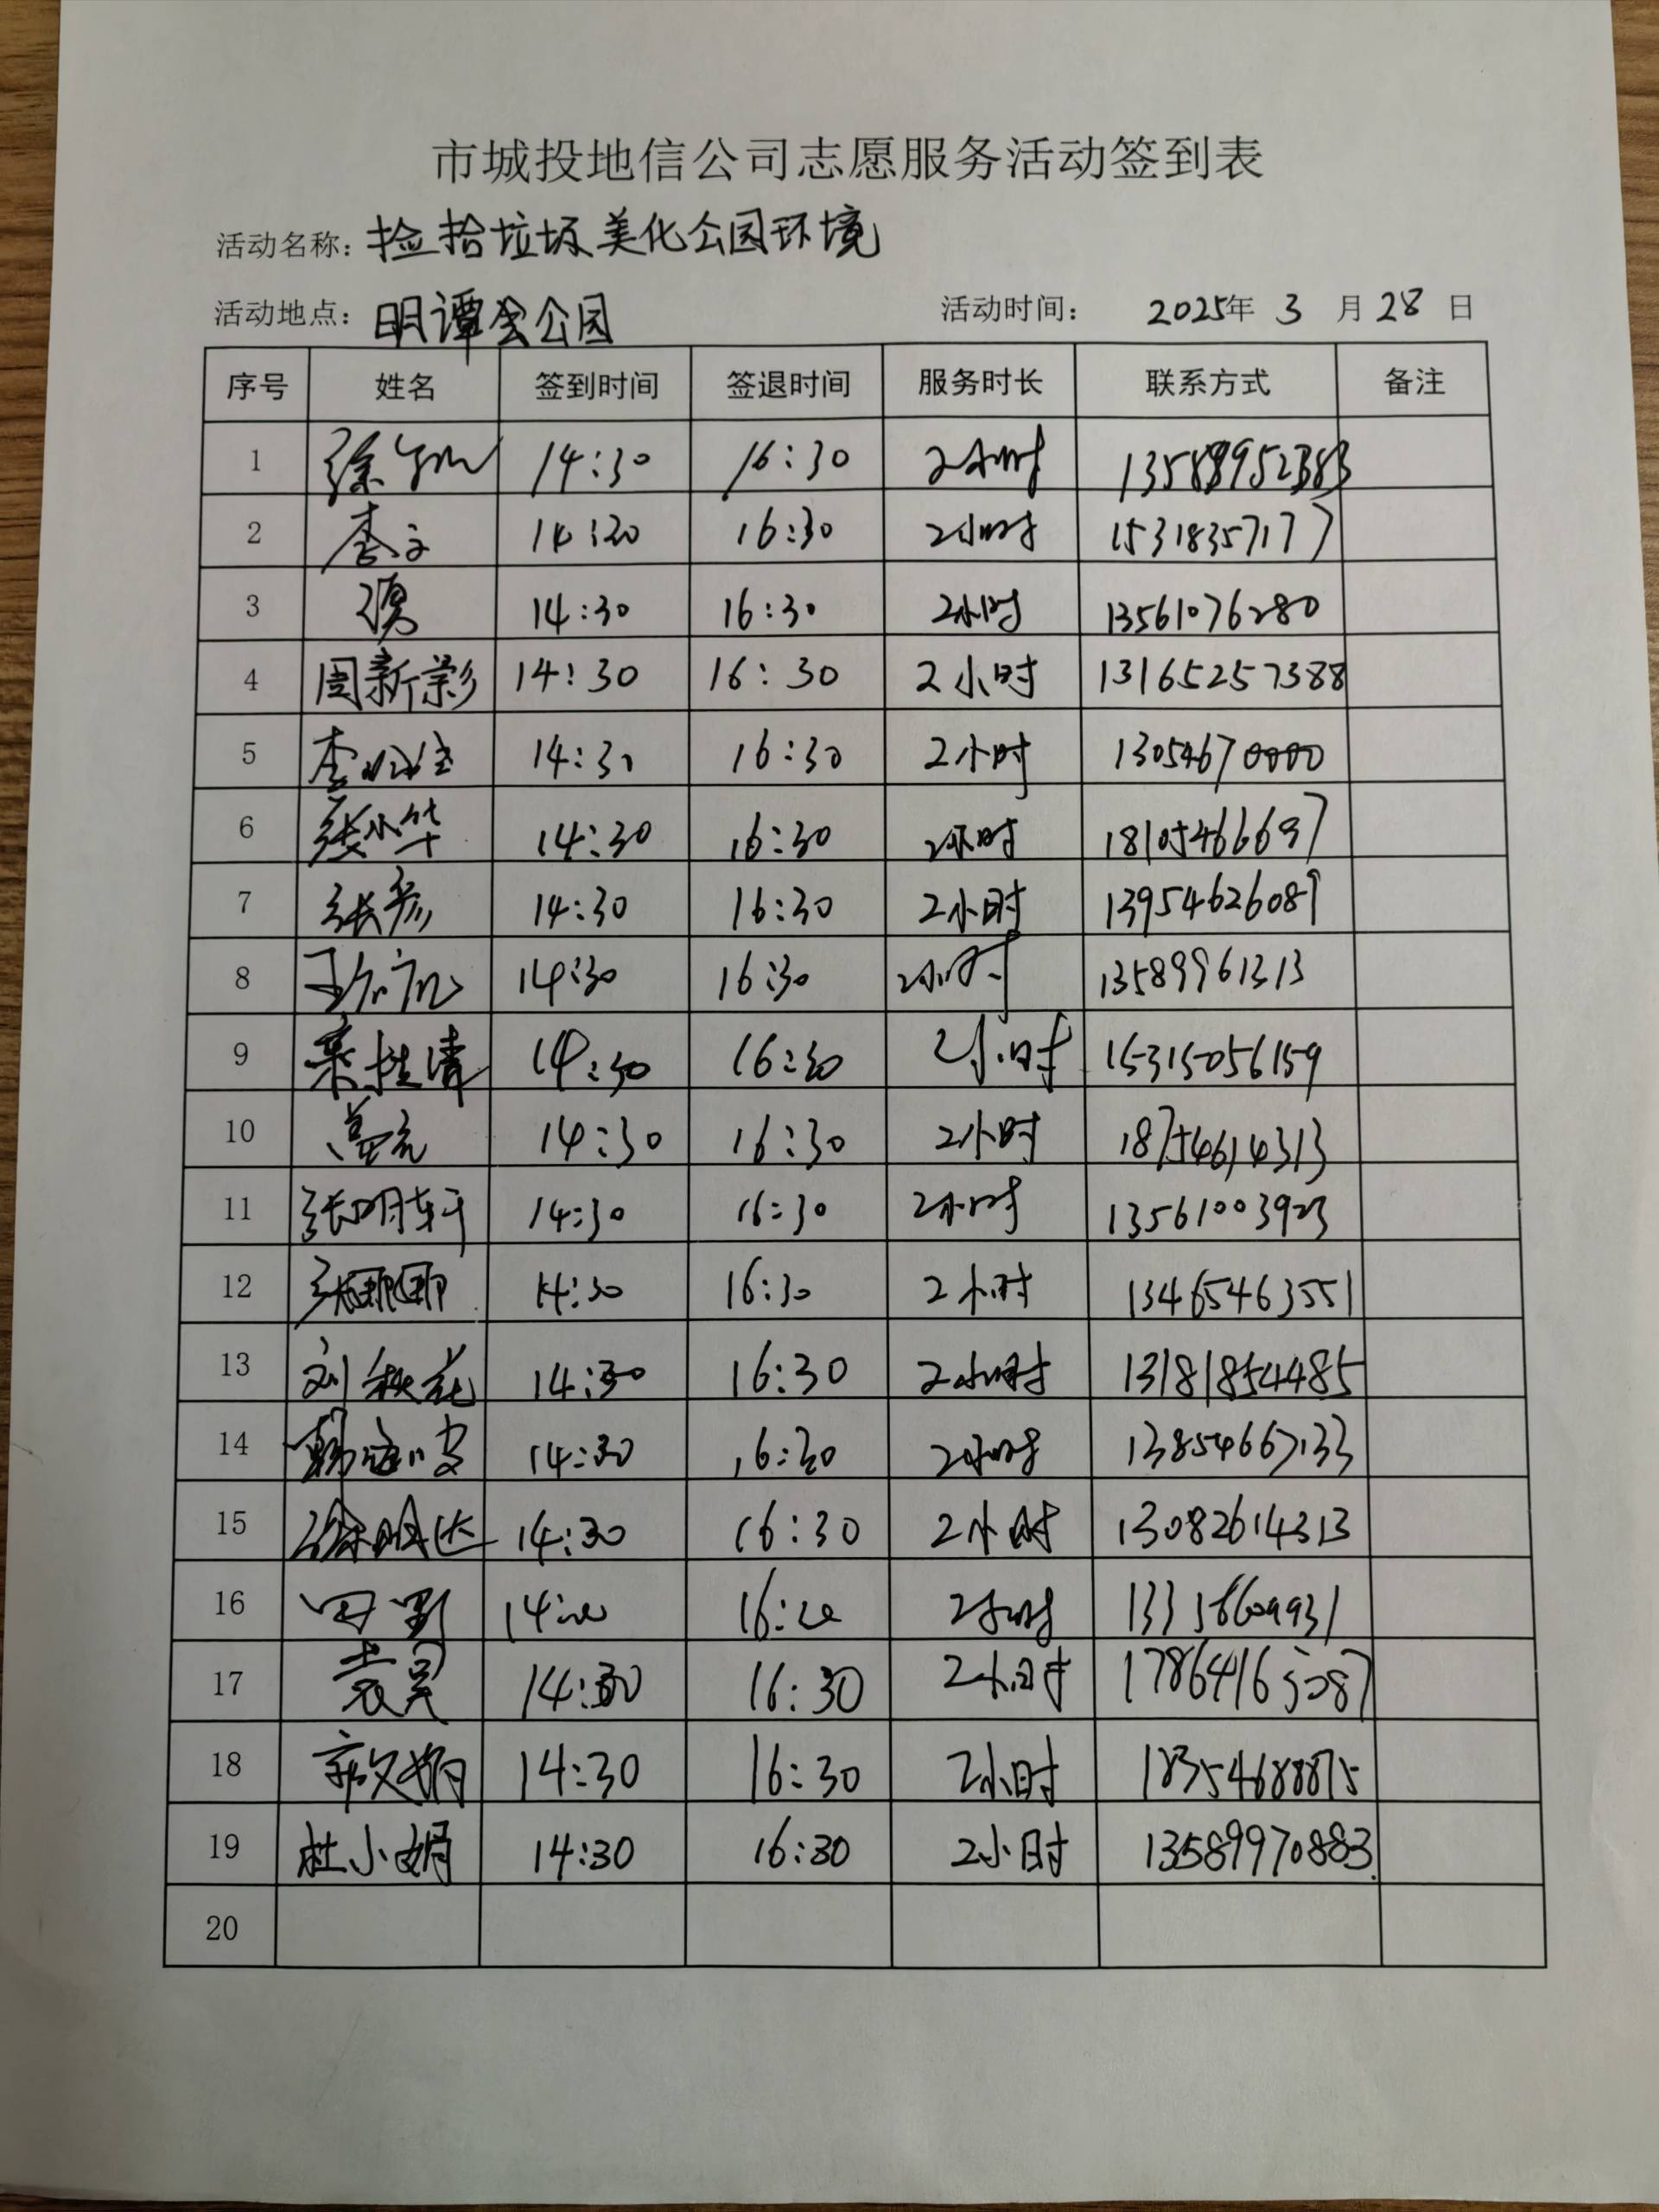 市城投地信公司志愿服务活动签到表
活动名称：捡拾垃圾美化公园环境
活动地点：明谭会公园 活动时间： 2025年 3 月 28 日
序号 姓名 签到时间 签退时间 服务时长 联系方式 备注
1 徐 14:30 16:30 2小时
2 李 14:30 16:30 2小时 15318357177
3 14:30 16:30 2小时 13561076280
4 周新影 14:30 16:30 2小时 13165257388
5 李 14:30 16:30 2小时 13054670000
6 张小华 14:30 16:30 2小时 18105466697
7 张彦 14:30 16:30 2小时 13954626089
8 王 14:30 16:30 2小时 13589961313
9 桂清 14:30 16:30 2小时 15315056159
10 14:30 16:30 2小时 18754614313
11 张明轩 14:30 16:30 2小时 13561003923
12 张娜娜 14:30 16:30 2小时 13465463551
13 刘秋花 14:30 16:30 2小时 13181854485
14 14:30 16:30 2小时 13854667133
15 徐明达 14:30 16:30 2小时 13082614313
16 田 2小时
17 袁昊 14:30 16:30 2小时 17864165087
18 文娟 14:30 16:30 2小时 18354688875
19 杜小娟 14:30 16:30 2小时 13589970883
20